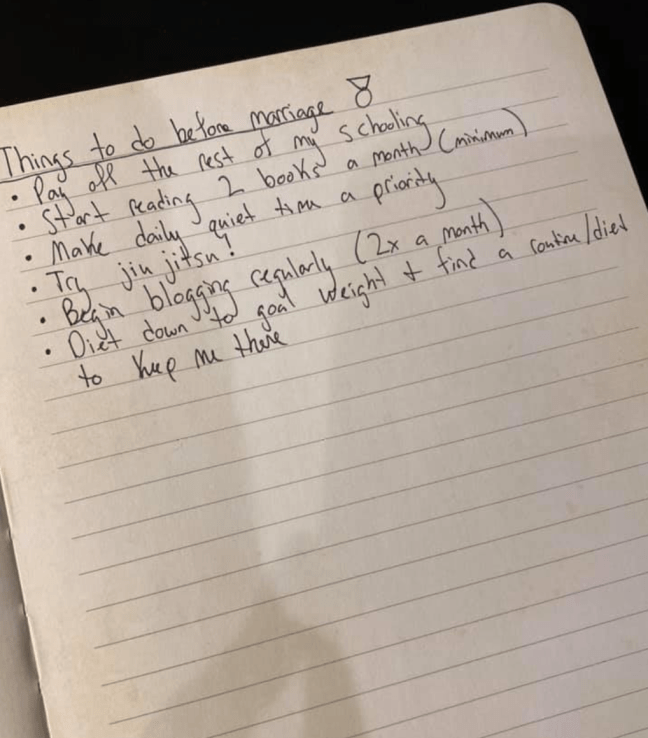 Things to do before marriage
• Pay off the rest of my schooling
• Start reading 2 books a month (minimum)
• Make daily quiet time a priority
• Try jiu jitsu!
• Begin blogging regularly (2x a month)
• Diet down to goal weight + find a routine/diet
to keep me there